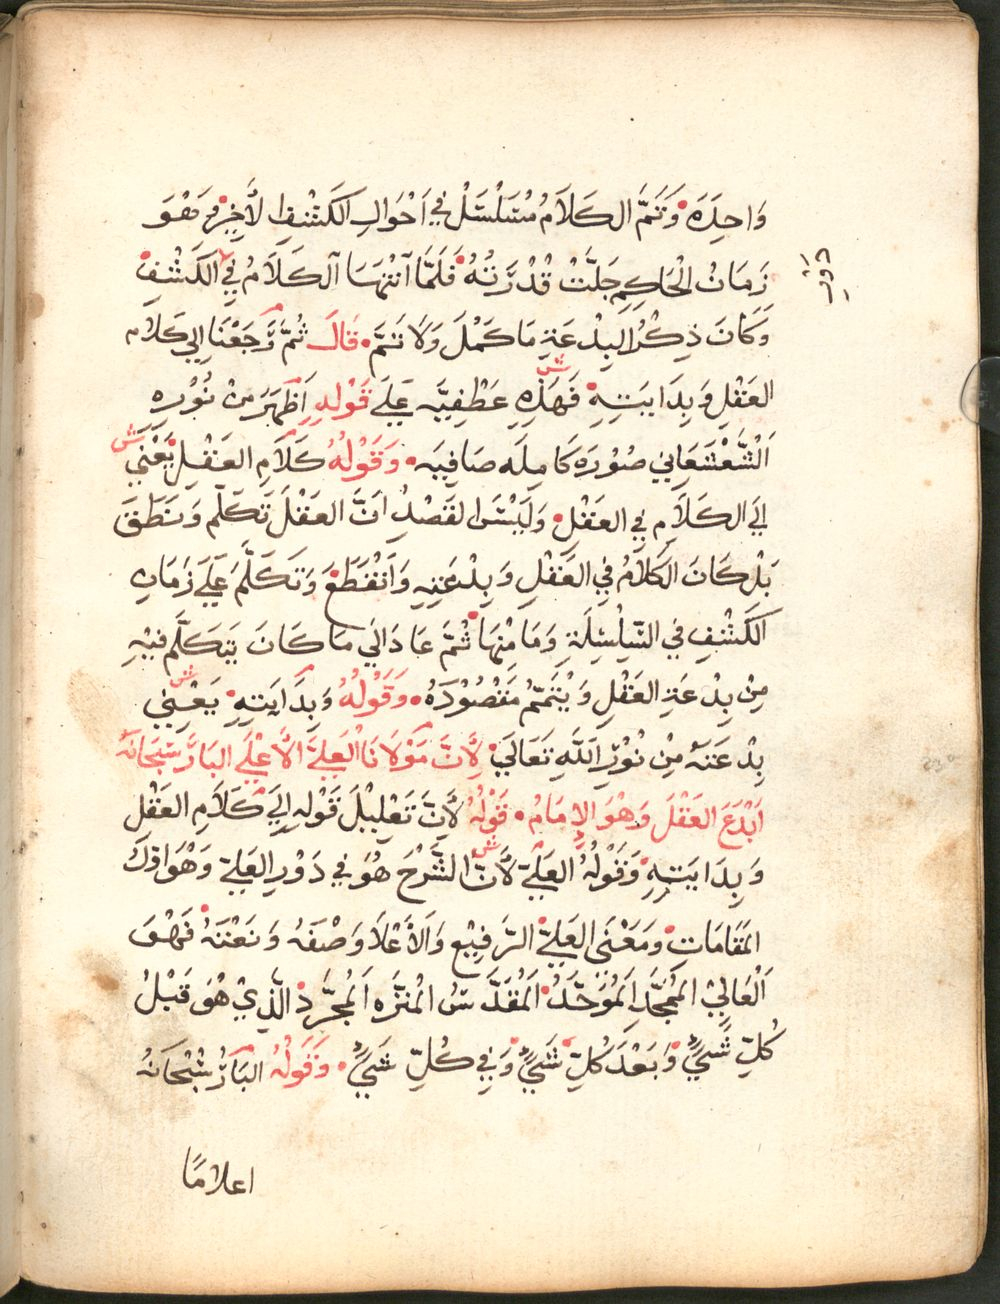 وَاحِدَه وَتَمَّ الكَلَامُ مُتَسَلْسَلْ في اَحْوَالِ الكَشْفِ الأَخِرْ وَهْوَ
زَمَانْ الْحَاكِمِ جَلَّتْ قُدْرَتُهُ فَلَمَّا آنْتَهَا آلكَلَامُ فِي الكَشْفِ
وَكَانَ ذِكْرُ البِدْعَةِ مَا كَمُلَ وَلَا تَمَّ قَالَ ثُمَّ رَجَعْنَا اِلى كَلَام
العَقْلِ وَبِدَايَتِهِ ش فَهَذِهِ عَطْفِيَّه عَلَى قَوْلِهِ اَظْهَرَ مِنْ نُوْرِهِ
اَلْشَّعْشَعَانِي صُوْرَه كَامِلَه صَافِيَه وَقَوْلُهُ كَلَامِ العَقْلِ ش يَعْنِي
اِلَى الكَلَامِ فِي العَقْلِ وَلَيْسَ القَصْدُ اَنَّ العَقْلَ تَكَلَّم وَنَطَقَ
بَلْ كَانَ الكَلَامُ فِي العَقْلِ وَبِدْعَتِهِ وَاَنْقَطَعَ وَتَكَلَّمَ عَلَى زَمَانِ
الكَشْفِ فِي السِّلْسِلَةِ وَمَا مِنْهَا ثُمَّ عَادَ اِلَى مَا كَانَ يَتَكَلَّم فيْهِ
مِنْ بِدْعَةِ العَقْلِ وَيُتَمِّمْ مَقْصُوْدَهُ وَقَوْلُهُ وَبِدَايَتِهِ ش يَعْنِي
بِدْعَتَهُ مِنْ نُوْرِ اَللَّهِ تَعَالَى لِأَنَّ مَوْلَانَا العَلِيَّ الأَعْلَى البَارَّ سُبْحَانَهُ
اَبْدَعَ العَقْلَ وَهْوَ الإِمَامُ قَوْلُهُ لأَنَّ تَعْلِيْلَ قَوْلِهِ اِلَى كَلَامِ العَقْلِ
وَبِدَايَتِهِ وَقَوْلُهُ العَلِيَّ ش لأَنَّ الشَّرْحَ هُوَ فِي دَوْرِ العَلِي وَهْوَ اوّل
المَقَامَات وَمَعْنَى العَلِيّ الرَّفِيْع وَالأَعْلَا وَصْفَهُ وَنَعْتَهُ فَهْوَ
اَلْعَالِيْ المُمَجَّد اَلْمُوَحَّدُ اَلْمُقَدَّسُ الْمُنَزَّه اَلْمُجَرَّدْ الَّذِيْ هُوَ قَبْلُ
كُلِّ شَيْءٍ وَبَعْدَ كُلِّ شَيْءٍ وَفِي كُلِّ شَيْءٍ وَقَوْلُهُ البَارُّ سُبْحَانَهُ
اعلامًا